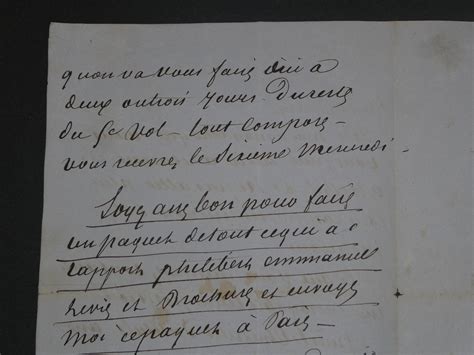 qu'on va vous faire d'ici a
deux ou trois jours Du reste
du 5e Vol - tout compose -
vous recevrez le Sixième mercredi -
Soyez assez bon pour faire
un paquet de tout ce qui a
rapport philibert emmanuel
livres et Brochures et envoyez
moi ce paquet à Paris -